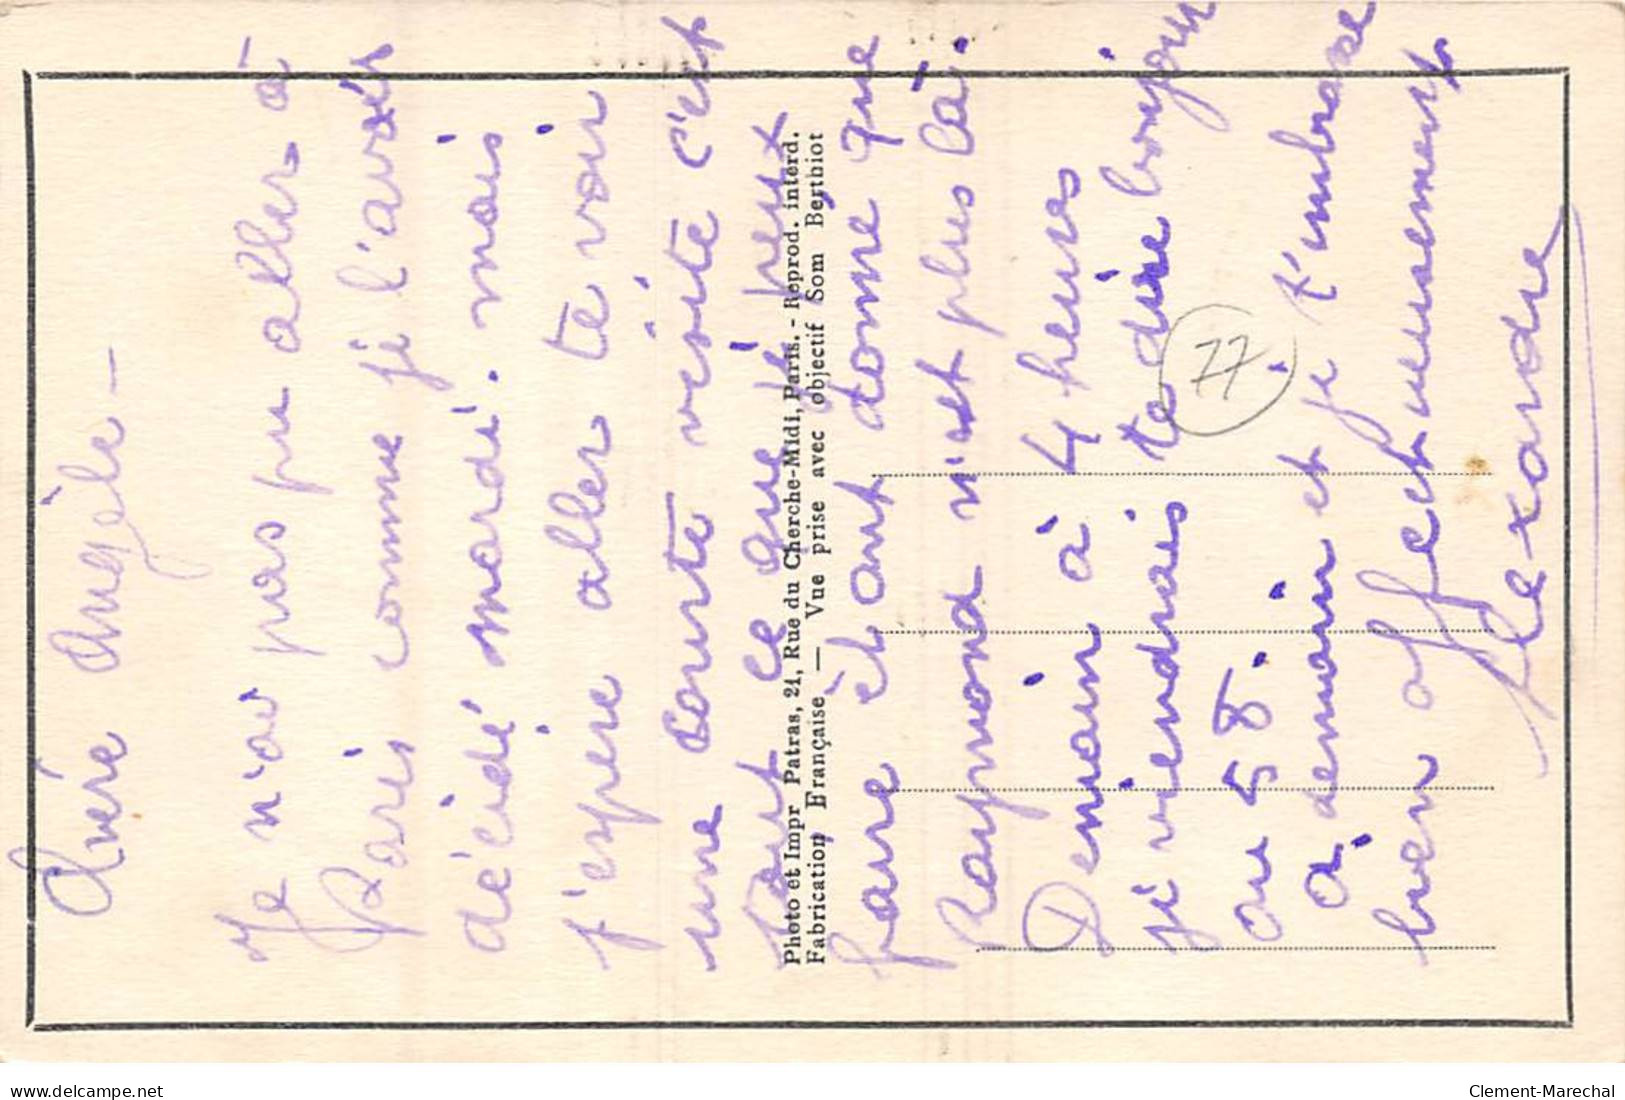 Chère Angèle -
Je n'ai pas pu aller à
Paris comme je l'avais
décidé mardi. mais
j'espère aller te voir
une courte visite c'est
tout ce que je peux
faire étant donné que
Raymond n'est plus là.
Demain à 4 heures
je viendrais te dire bonjour
au 58.
A demain et je t'embrasse
bien affectueusement
Alexandre
Photo et Impr Patras, 21, Rue du Cherche-Midi, Paris. - Reprod. interd.
Fabrication Française — Vue prise avec objectif Som Berthiot
77
delcampe.net
Clement-Marechal